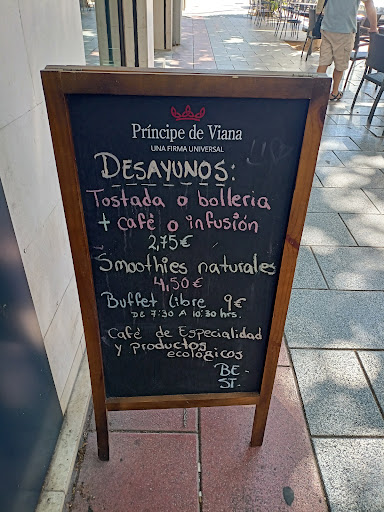 Príncipe de Viana
UNA FIRMA UNIVERSAL
DESAYUNOS:
Tostada o bolleria
+ café o infusión
2,75€
Smoothies naturales
4,50€
Buffet libre 9€
DE 7:30 A 10:30 hrs.
Café de Especialidad
y productos
ecológicos
BE-
ST.